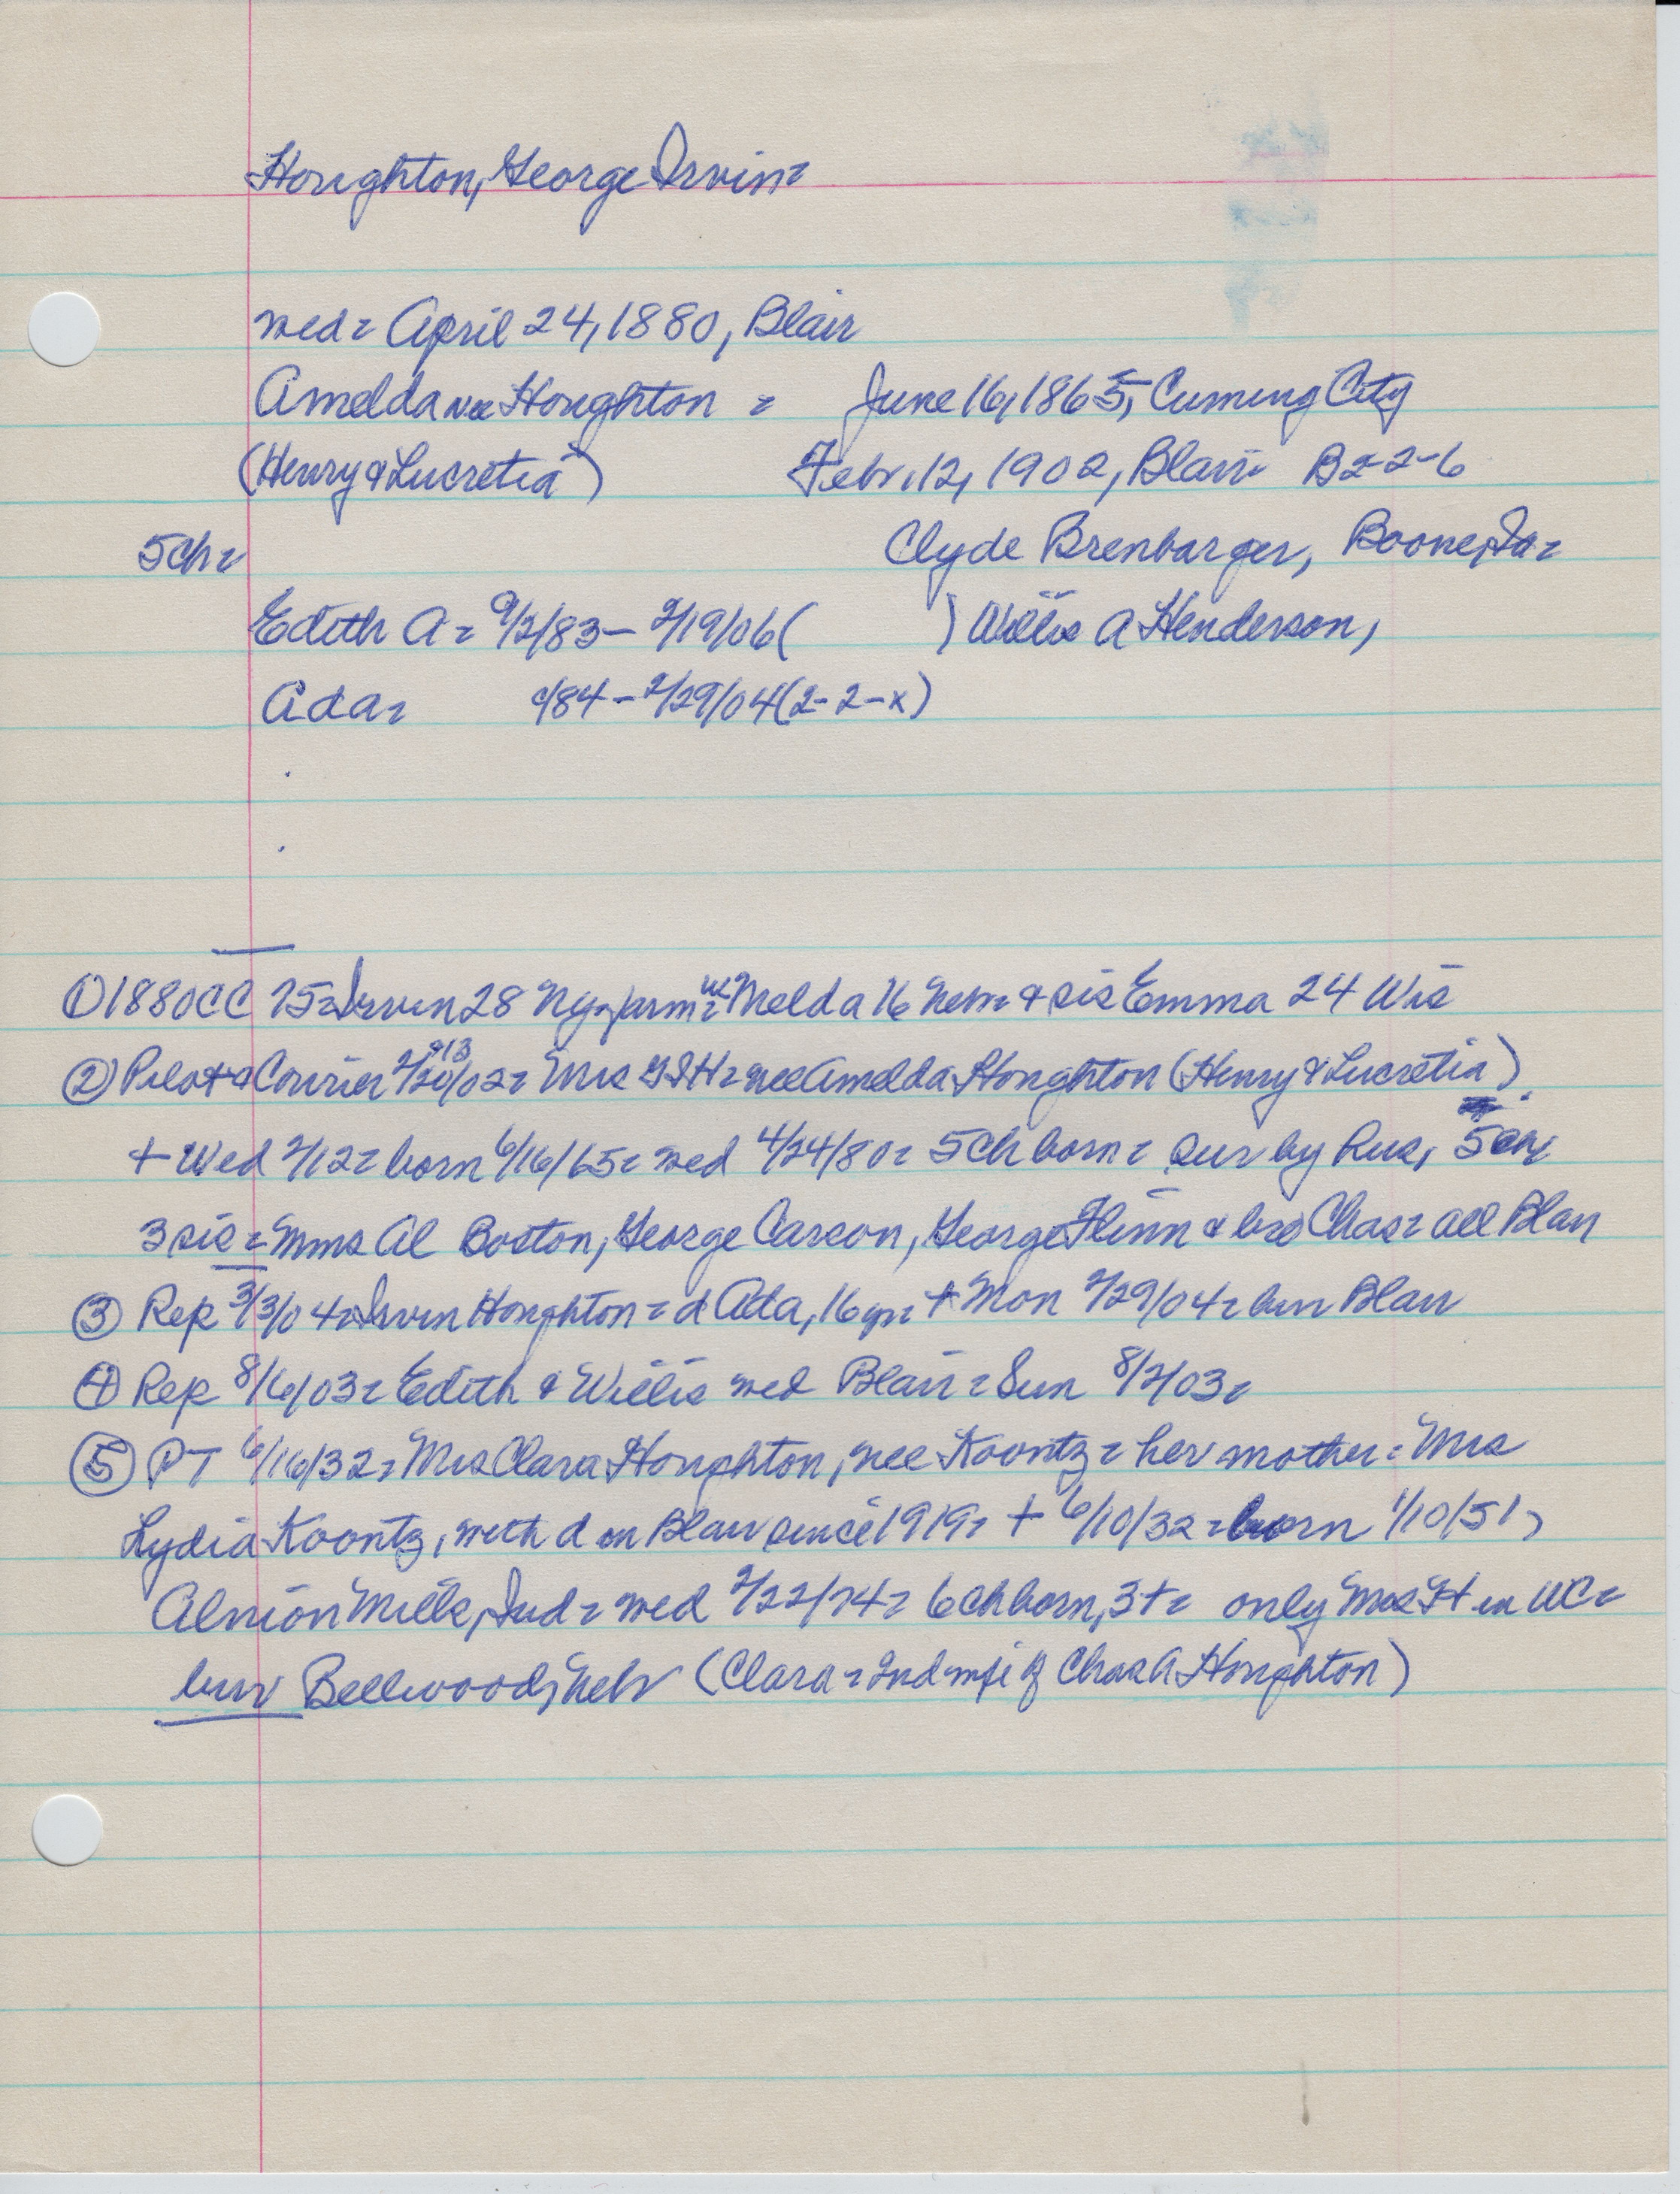 Houghton, George Irvin=
wed= April 24, 1880, Blair
Amelda nee Houghton = June 16, 1865, Cuming City
(Henry & Lucretia) Febr. 12, 1902, Blair B2-2-6
5ch= Clyde Brenbarger, Boone, Ia=
Edith A= 9/2/83 - 2/19/06 ( ) Willis A Henderson,
Ada= /84 - 2/29/04 (2-2-x)
① 1880CC 75= Irvin 28 Ny= farm= w Melda 16 Nebr= & sis Emma 24 Wis
② Pilot & Courier 2/20/02= &13 Mrs GIH= nee Amelda Houghton (Henry & Lucretia).
+ Wed 2/12= born 6/16/65= wed 4/24/80= 5ch born= sur by hus, 5ch
3 sis= Mms Al Boston, George Carson, George Flinn & bro Chas= all Blair
③ Rep 3/3/04= Irvin Houghton= d Ada, 16 yr= + Mon 2/29/04= bur Blair
④ Rep 8/6/03= Edith & Willis wed Blair= Sun 8/2/03=
⑤ PT 6/16/32= Mrs Clara Houghton, nee Koontz= her mother= Mrs
Lydia Koontz, with d in Blair since 1919= + 6/10/32= born 1/10/51,
Mills, Ind= wed 2/22/74= 6ch born, 3+= only Mrs H in WC=
bur Bellwood, Nebr (Clara= 2nd wife of Chas A Houghton)